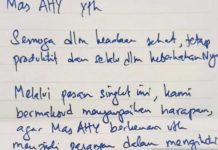 Mas AHY Yth
Semoga dlm keadaan sehat, tetap
produktif dan selalu dlm keberkahanNya
Melalui pesan singkat ini, kami
bermaksud menyampaikan harapan,
agar Mas AHY berkenan utk
menjadi pasangan dalam mengikuti